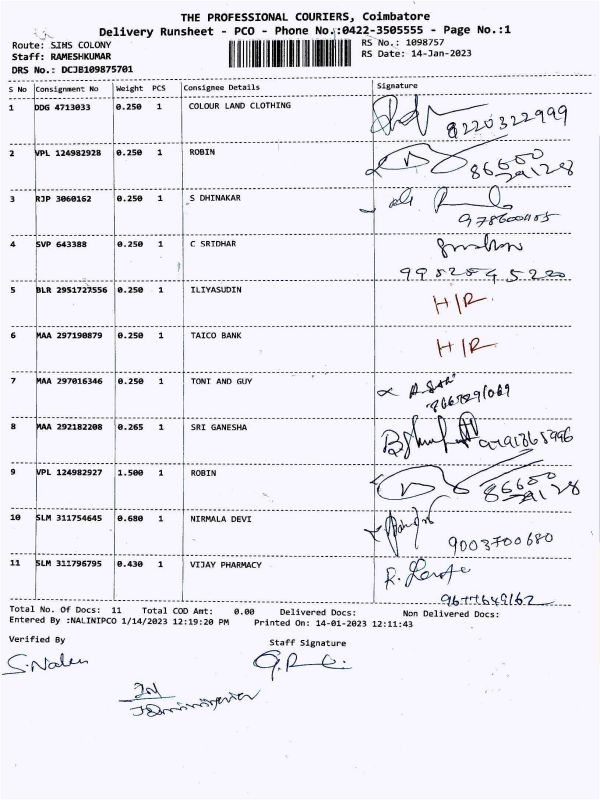 THE PROFESSIONAL COURIERS, Coimbatore
Delivery Runsheet - PCO - Phone No.:0422-3505555 - Page No.:1
Route: SIMS COLONY RS No.: 1098757
Staff: RAMESHKUMAR RS Date: 14-Jan-2023
DRS No.: DCJB109875701
S No Consignment No Weight PCS Consignee Details Signature
1 DDG 4713033 0.250 1 COLOUR LAND CLOTHING 8220322999
2 VPL 124982928 0.250 1 ROBIN 86680
29128
3 RJP 3060162 0.250 1 S DHINAKAR
4 SVP 643388 0.250 1 C SRIDHAR
5 BLR 2951727556 0.250 1 ILIYASUDIN H/R
6 MAA 297190879 0.250 1 TAICO BANK H/R
7 MAA 297016346 0.250 1 TONI AND GUY
8 MAA 292182208 0.265 1 SRI GANESHA
9 VPL 124982927 1.500 1 ROBIN 86680
29128
10 SLM 311754645 0.680 1 NIRMALA DEVI
9003700680
11 SLM 311796795 0.430 1 VIJAY PHARMACY
9677649162
Total No. Of Docs: 11 Total COD Amt: 0.00 Delivered Docs: Non Delivered Docs:
Entered By :NALINIPCO 1/14/2023 12:19:20 PM Printed On: 14-01-2023 12:11:43
Verified By Staff Signature
S.Nalini